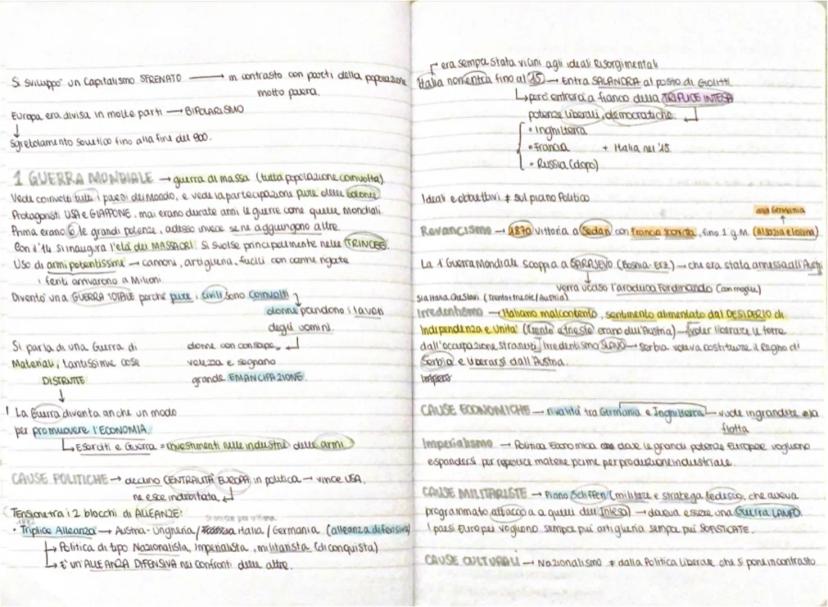 Si sviluppò un Capitalismo SFRENATO → in contrasto con parti della popolazione
molto povera.
Europa era divisa in molte parti → BIPOLARISMO
↓
Sgretolamento sovietico fino alla fine del 900.
1 GUERRA MONDIALE → guerra di massa (tutta popolazione coinvolta)
Vede coinvolti tutti i paesi del mondo, e vede la partecipazione pure delle colonie
Protagonisti USA e GIAPPONE, mai erano durate anni le guerre come quelle Mondiali
Prima erano 6 le grandi potenze, adesso invece se ne aggiungono altre.
Con il '14 si inaugura l'età dei MASSACRI. Si svolse principalmente nelle TRINCEE.
Uso di armi potentissime → cannoni, artiglieria, fucili con canne rigate
i feriti arrivarono a Milioni.
Diventò una GUERRA TOTALE perchè pure i civili sono coinvolti
donne prendono i lavori
degli uomini.
Si parla di una Guerra di
Materiali, tantissime cose
DISTRUTTE
donne con
e segnano
grande EMANCIPAZIONE.
! La Guerra diventa anche un modo
per promuovere l'ECONOMIA.
↳ Eserciti e Guerra = investimenti sulle industrie delle armi
CAUSE POLITICHE → declino CENTRALITÀ EUROPA in politica → vince USA,
ne esce indebitata,
Tensione tra i 2 blocchi di ALLEANZE:
• Triplice Alleanza → Austria-Ungheria / Italia / Germania (alleanza difensiva)
↳ Politica di tipo Nazionalista, Imperialista, militarista (di conquista)
↳ E' un'ALLEANZA DIFENSIVA nei confronti delle altre.
era sempre stata vicini agli ideali Risorgimentali
Italia non entra fino al 15 → Entra SALANDRA al posto di GIOLITTI
↳ però entrerà a fianco della TRIPLICE INTESA
potenze liberali, democratiche
• Inghilterra
• Francia + Italia nel '15
• Russia (dopo)
Ideali e obbiettivi ≠ sul piano Politico
alla Germania
Revanscismo → 1870 vittoria a Sedan con Francia sconfitta, fino 1 g.M. (Alsazia e Lorena)
La 1 Guerra Mondiale scoppia a SARAJEVO (Bosnia-Erz) → che era stata annessa all'Austria
verrà ucciso l'arciduca Ferdinando (con moglie)
sia Italia che Slavi (Trento Trieste/Austria)
Irredentismo → Italiano malcontento, sentimento alimentato dal DESIDERIO di
Indipendenza e Unità (Trento e Trieste erano dell'Austria) → voler liberare le terre
dall'occupazione straniera, Irredentismo SLAVO → Serbia voleva costituire il Regno di
Serbia e liberarsi dall'Austria.
Impero
CAUSE ECONOMICHE → rivalità tra Germania e Inghilterra → vuole ingrandire la
flotta
Imperialismo → Politica Economica che dove le grandi potenze Europee vogliono
espandersi per reperire materie prime per produzione industriale.
CAUSE MILITARISTE → Piano Schliffen (militare e stratega tedesco, che aveva
programmato attacco a a quelli dell'Intesa) → doveva essere una Guerra LAMPO.
I paesi Europei vogliono sempre più artiglieria sempre più SOFISTICATE.
CAUSE CULTURALI → Nazionalismo ≠ dalla Politica Liberale che si pone in contrasto